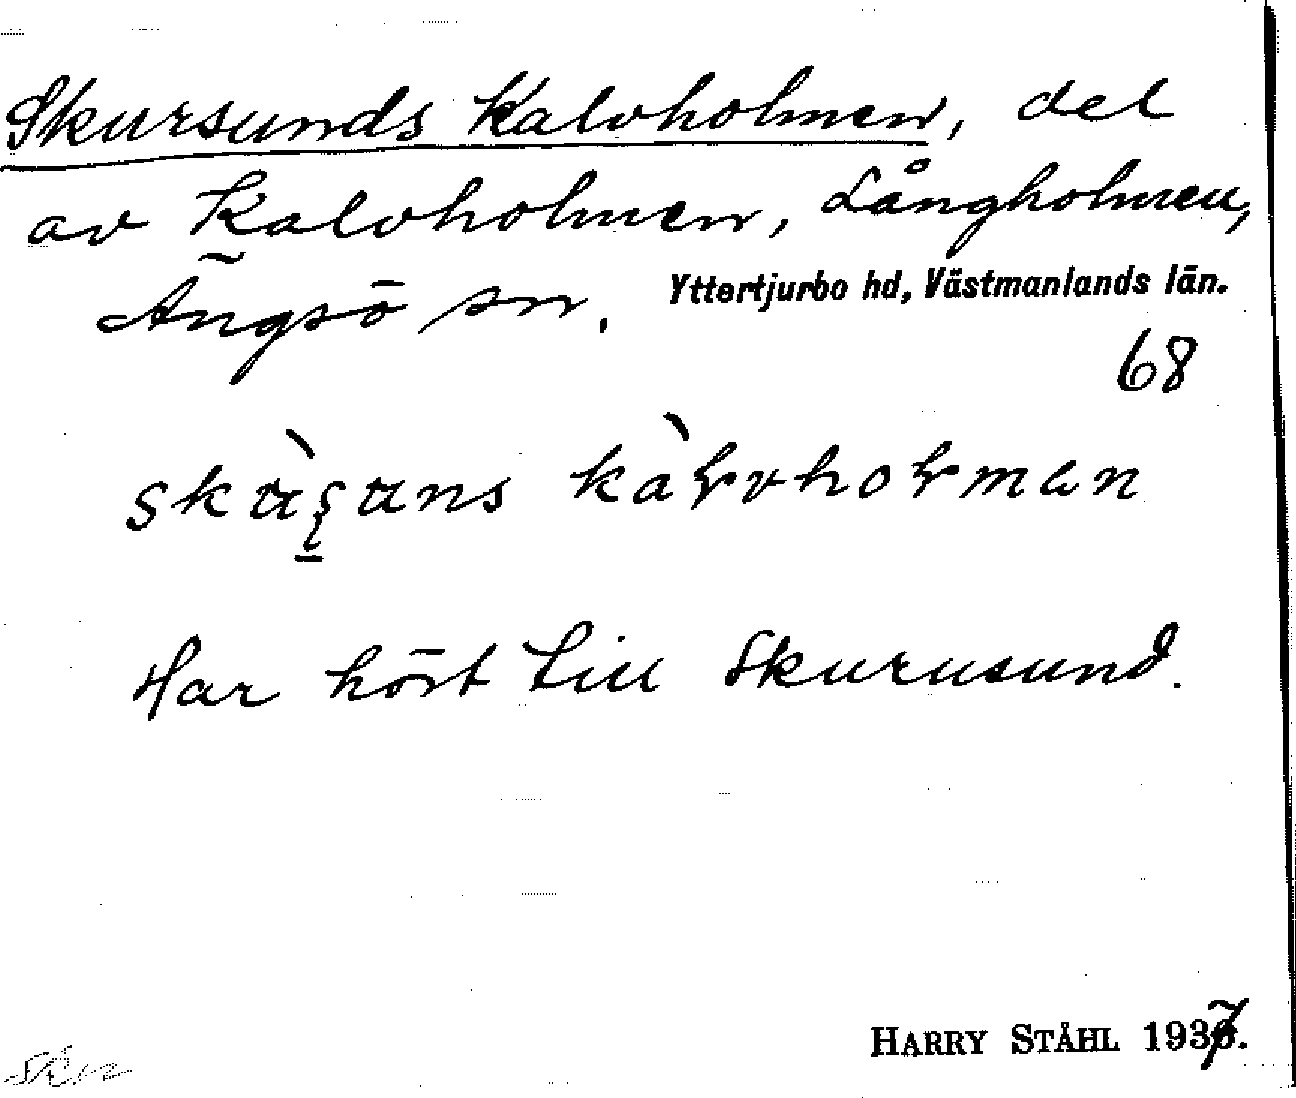 Skursunds Kalvholmen, del
av Kalvholmen, Långholmen,
Ängsö sn. Yttertjurbo hd, Västmanlands län.
68
Har hört till Skurusund.
HARRY STÅHL 1937.